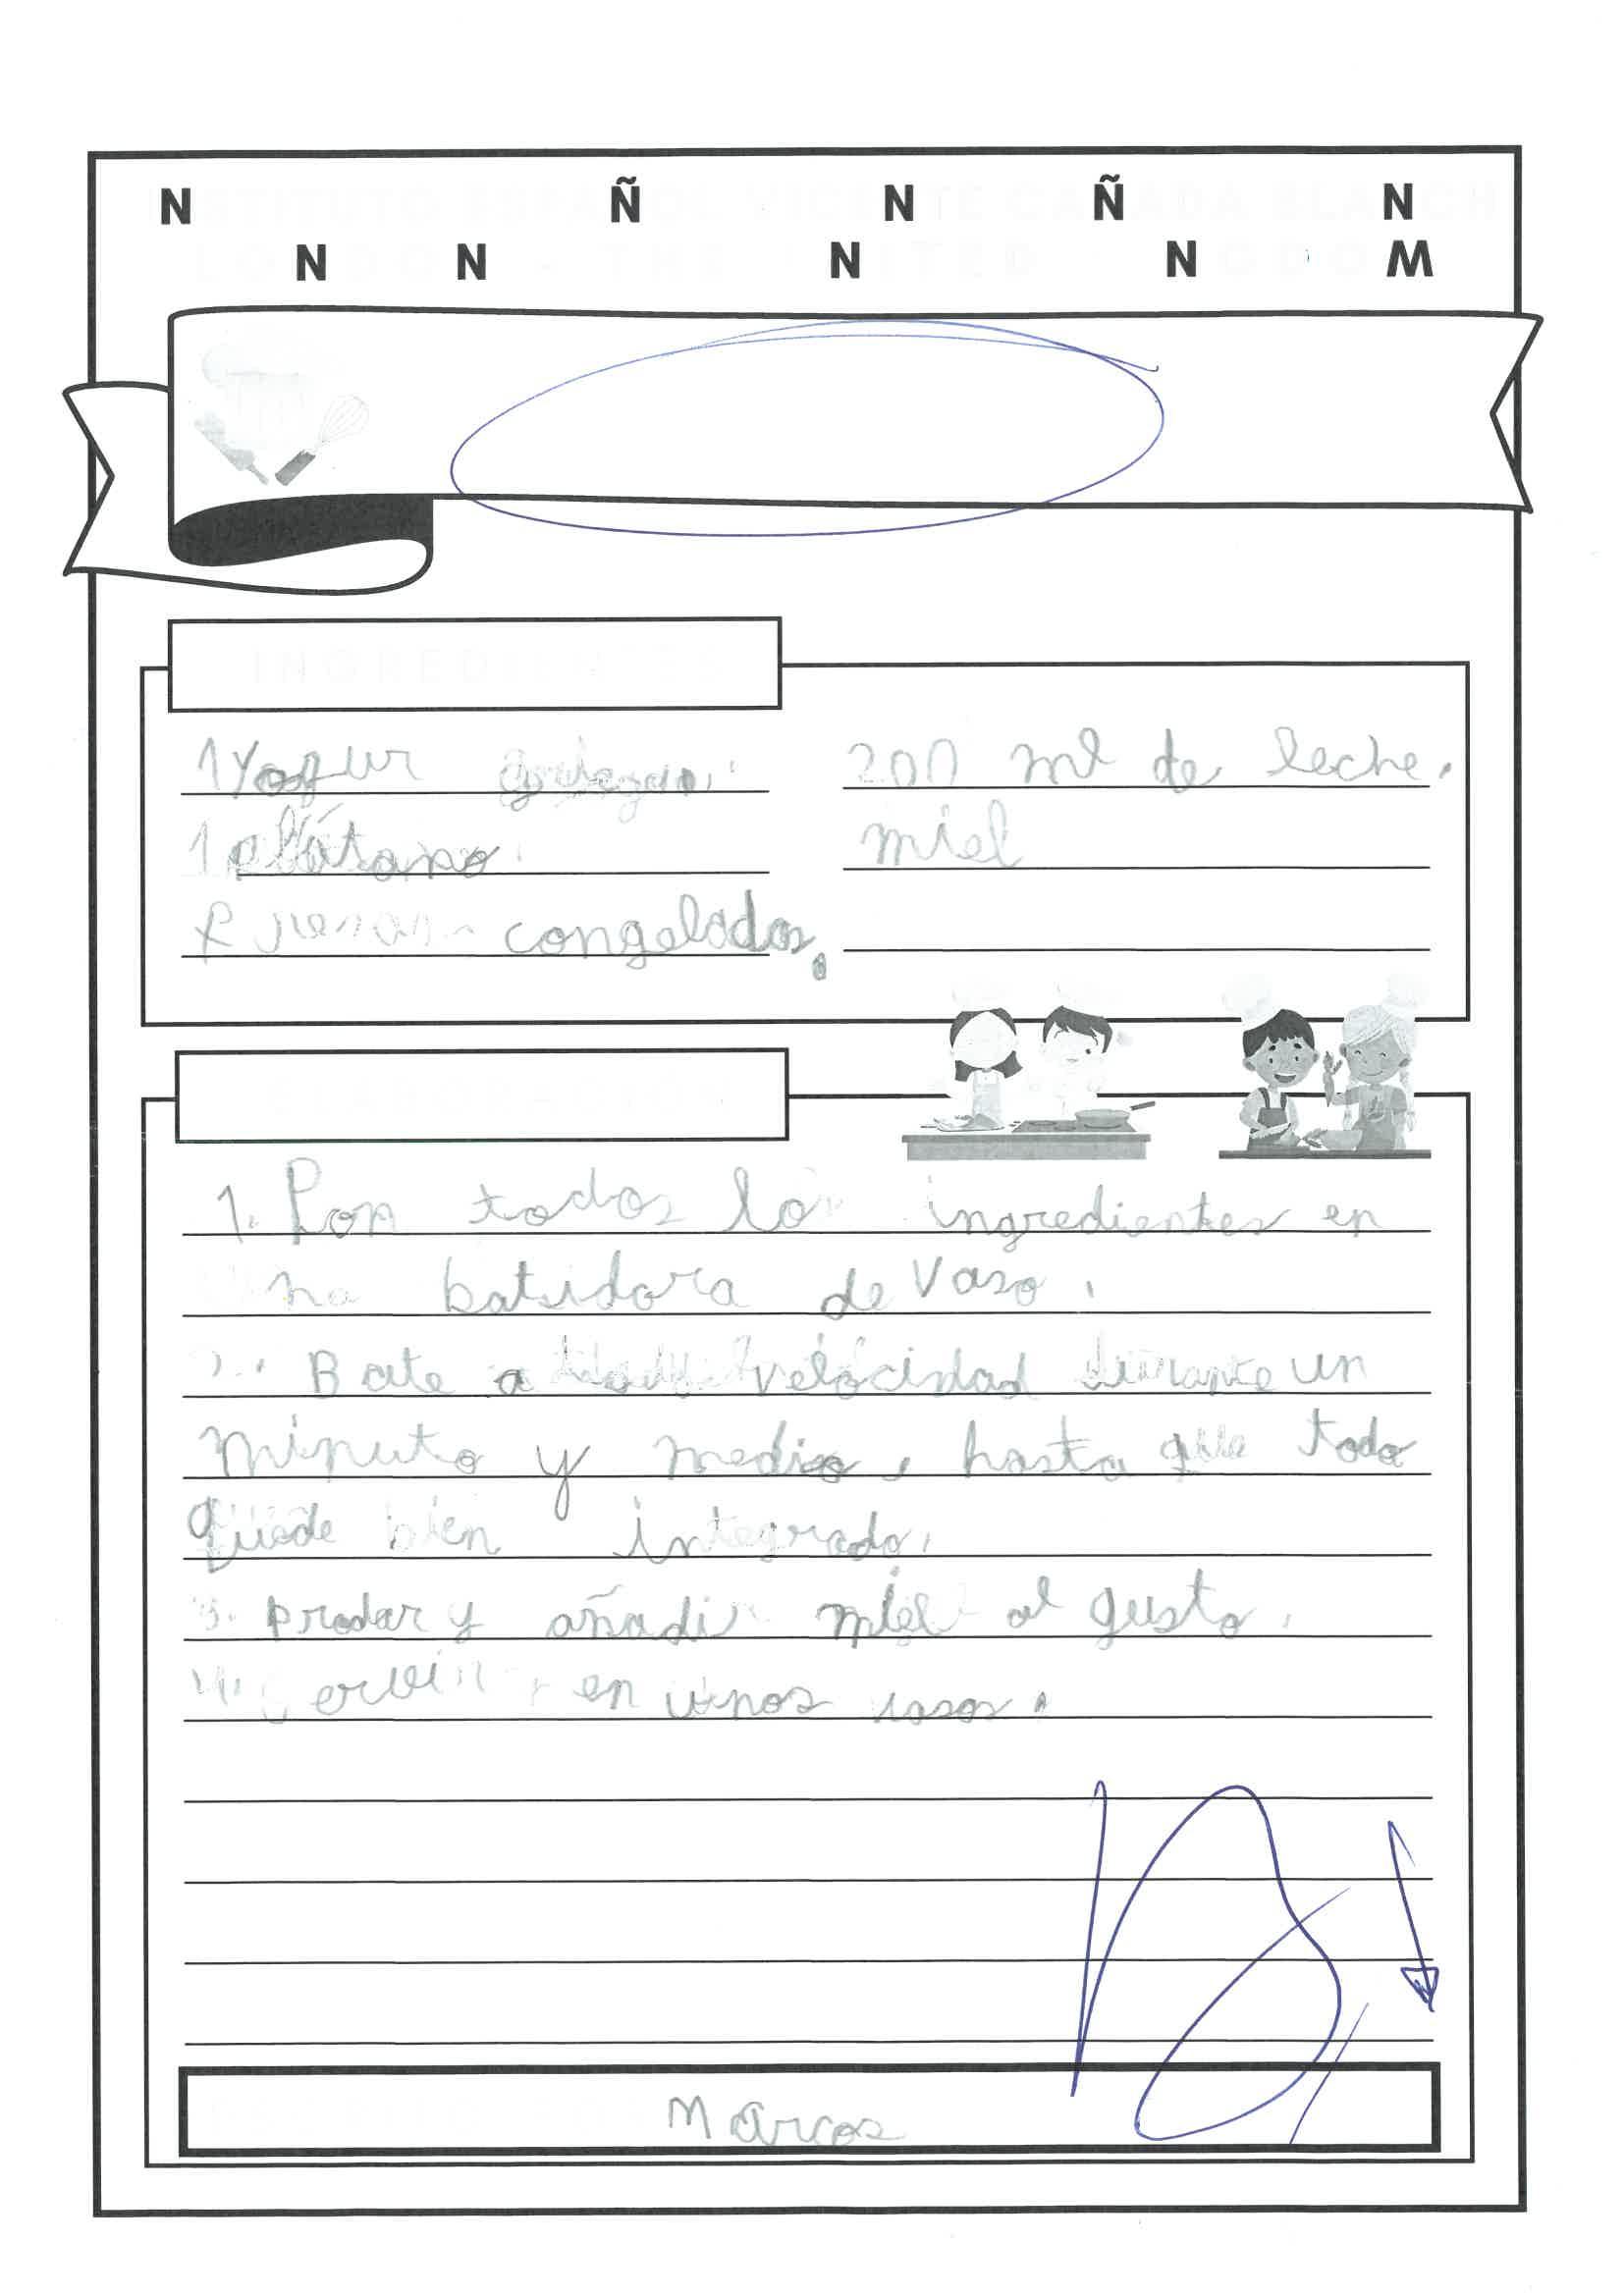 INSTITUTO ESPAÑOL VICENTE CAÑADA BLANCH
LONDON - THE UNITED KINGDOM
INGREDIENTES
1 Yogur griego.
200 ml de leche.
1 plátano
miel
congelados.
1. Pon todos los ingredientes en
una batidora de vaso.
2. Bate a velocidad durante un
minuto y medio, hasta que todo
quede bien integrado.
3. probar y añadir miel al gusto.
4. Servir en unos vasos.
Marcos